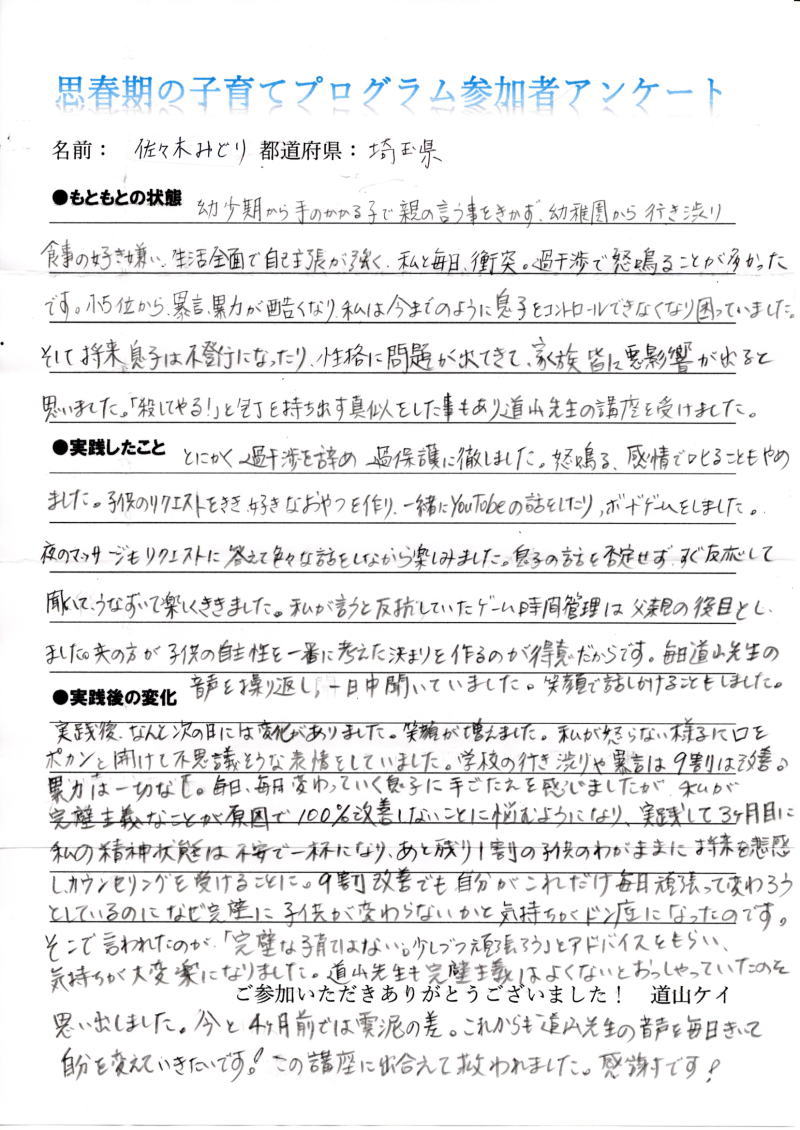 思春期の子育てプログラム参加者アンケート
名前： 佐々木みどり 都道府県： 埼玉県
●もともとの状態 幼少期から手のかかる子で親の言う事をきかず、幼稚園から行き渋り
食事の好き嫌い、生活全面で自己主張が強く、私と毎日、衝突。過干渉で怒鳴ることが多かった
です。小5位から、暴言、暴力が酷くなり、私は今までのように息子をコントロールできなくなり困っていました。
そして将来、息子は不登校になったり、性格に問題が出てきて、家族皆に悪影響が出ると
思いました。「殺してやる！」と包丁を持ち出す真似をした事もあり道山先生の講座を受けました。
●実践したこと とにかく過干渉を辞め 過保護に徹しました。怒鳴る、感情で叱ることもやめ
ました。子供のリクエストをきき、好きなおやつを作り、一緒にYouTubeの話をしたり、ボードゲームをしました。
夜のマッサージもリクエストに答えて色々な話をしながら楽しみました。息子の話を否定せず、すぐ反応して
聞いて、うなずいて楽しくききました。私が言うと反抗していたゲーム時間管理は父親の役目とし、
ました。夫の方が子供の自主性を一番に考えた決まりを作るのが得意だからです。毎日道山先生の
音声を繰り返し、一日中聞いていました。笑顔で話しかけることもしました。
●実践後の変化
実践後、なんと次の日には変化がありました。笑顔が増えました。私が怒らない様子に口を
ポカンと開けて不思議そうな表情をしていました。学校の行き渋りや暴言は9割は改善。
暴力は一切なし。毎日、毎日変わっていく息子に手ごたえを感じましたが、私が
完璧主義なことが原因で100%改善しないことに悩むようになり、実践して3ヶ月目に
私の精神状態は不安で一杯になり、あと残り1割の子供のわがままに将来を悲感
し、カウンセリングを受けることに。9割改善でも自分がこれだけ毎日頑張って変わろう
としているのになぜ完璧に子供が変わらないかと気持ちがドン底になったのです。
そこで言われたのが、「完璧な子育てはない。少しづつ頑張ろう」とアドバイスをもらい、
気持ちが大変楽になりました。道山先生も完璧主義はよくないとおっしゃっていたのを
ご参加いただきありがとうございました！ 道山ケイ
思い出しました。今と4ヶ月前では雲泥の差。これからも道山先生の音声を毎日きいて
自分を変えていきたいです！この講座に出合えて救われました。感謝です！